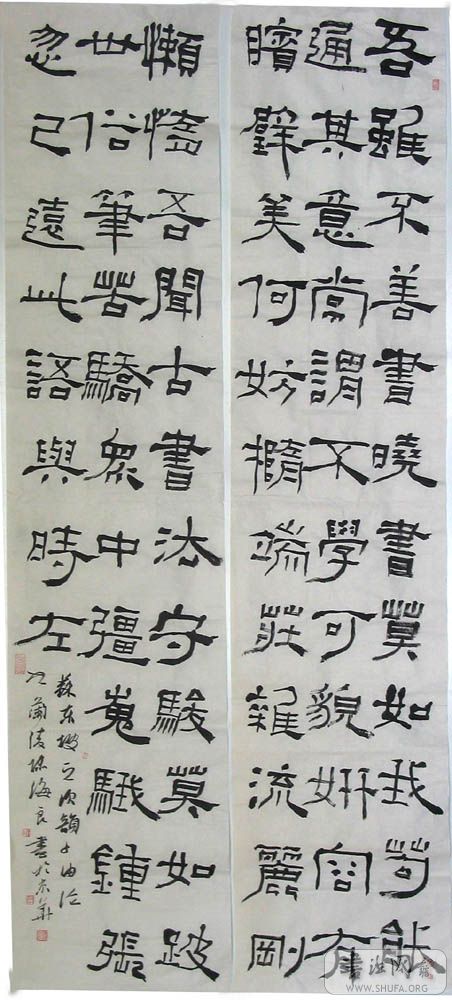 吾雖不善書曉書莫如我苟能
通其意常謂不學可貌妍容有
矉璧美何妨橢端莊雜流麗剛
懶惰吾聞古書法守駿莫如跛
世俗筆苦驕眾中彊嵬騀鍾張
忽已遠此語與時左
蘇東坡之次韻子由論
书蘭陵陳海良書於京華
書法网
WWW.SHUFA.ORG